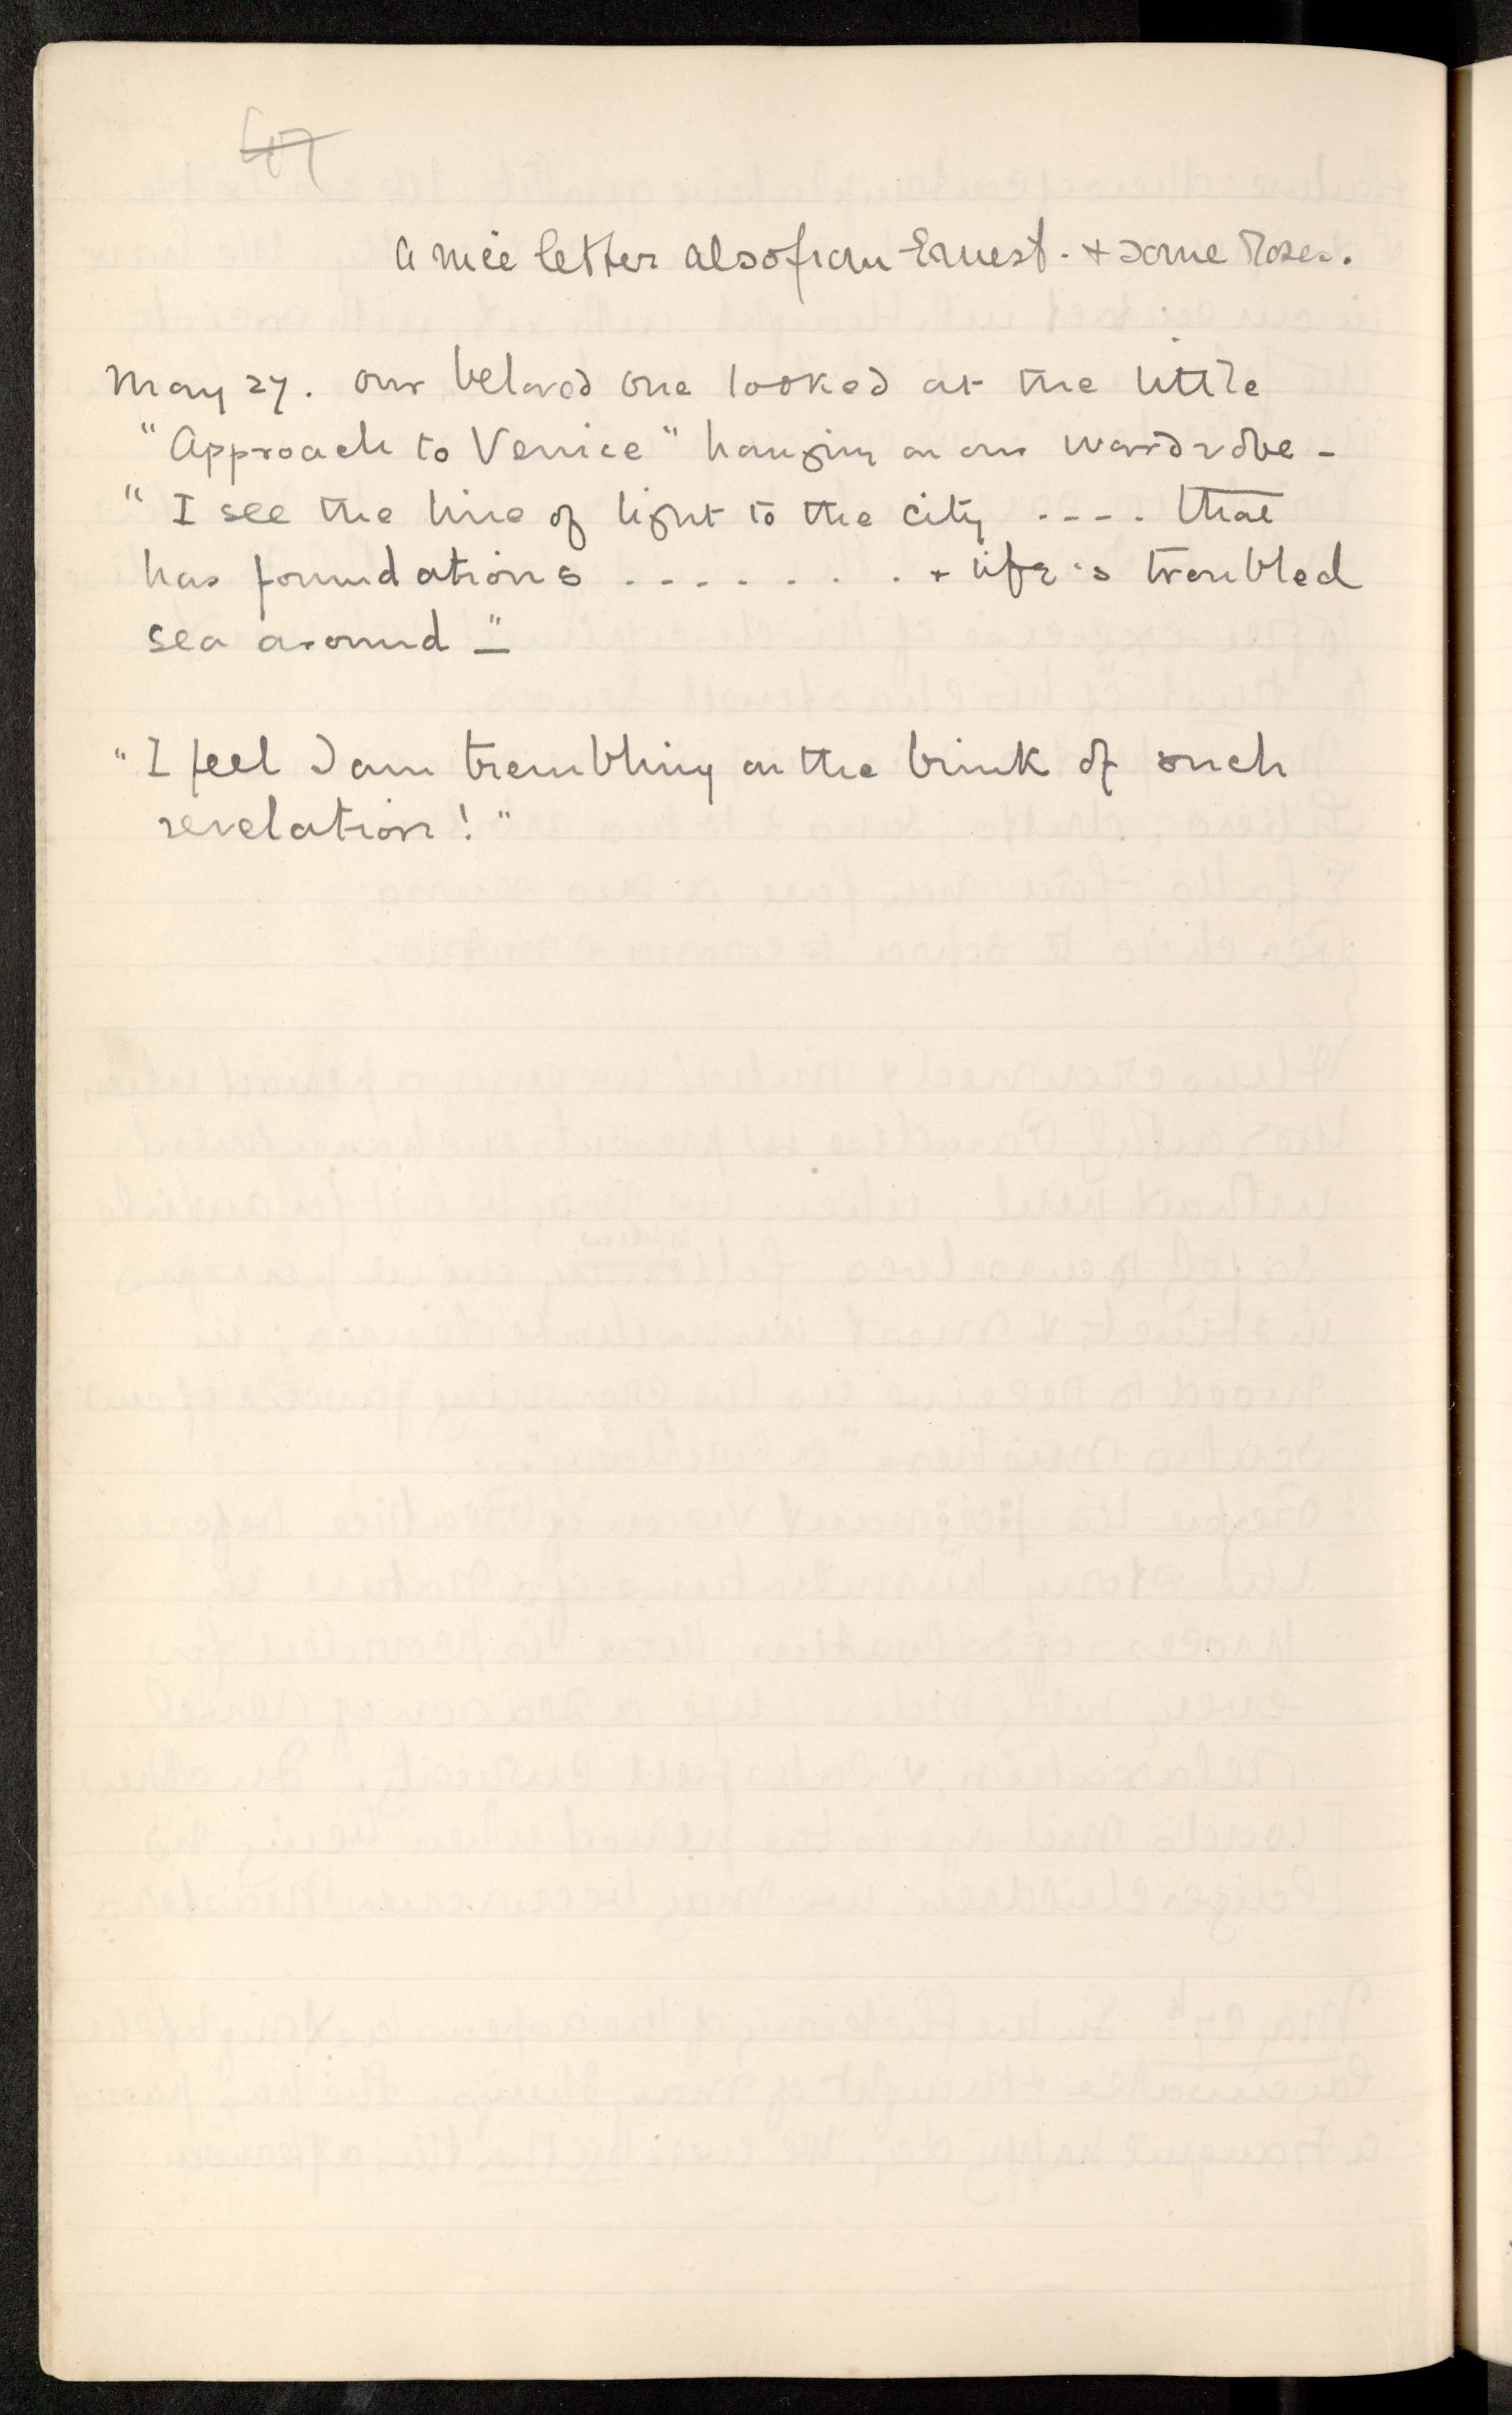 47
A nice letter also from Ernest. + some roses.
May 27. Our beloved one looked at the little
"Approach to Venice" hanging on our wardrobe –
"I see the line of light to the city .... that
has foundations ........ + life's troubled
sea around –"
"I feel I am trembling on the brink of such
revelation!"